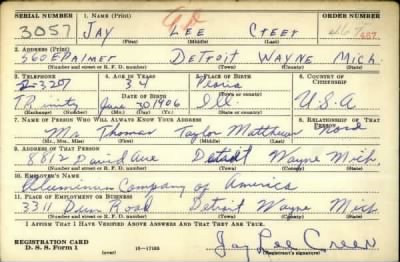 SERIAL NUMBER 1. NAME (Print) ORDER NUMBER
3057 JAY LEE
(First) (Middle) (Last)
2. ADDRESS (Print)
560 E PALMER DETROIT WAYNE Mich.
(Number and street or R. F. D. number) (Town) (County) (State)
3. TELEPHONE 4. AGE IN YEARS 5. PLACE OF BIRTH 6. COUNTRY OF CITIZENSHIP
2-3207 34 Peoria
DATE OF BIRTH (Town or county)
TRinity June 30 1906 Ill. U.S.A
(Exchange) (Number) (Mo.) (Day) (Yr.) (State or country)
7. NAME OF PERSON WHO WILL ALWAYS KNOW YOUR ADDRESS 8. RELATIONSHIP OF THAT PERSON
Mr. Thomas Taylor Matthew
(Mr., Mrs., Miss) (First) (Middle) (Last)
9. ADDRESS OF THAT PERSON
8812 David Ave Detroit Wayne Mich
(Number and street or R. F. D. number) (Town) (County) (State)
10. EMPLOYER'S NAME
Aluminum Company of America
11. PLACE OF EMPLOYMENT OR BUSINESS
3311 Dunn Road Detroit Wayne Mich
(Number and street or R. F. D. number) (Town) (County) (State)
I AFFIRM THAT I HAVE VERIFIED ABOVE ANSWERS AND THAT THEY ARE TRUE.
REGISTRATION CARD
D. S. S. Form 1 (over) Jay Lee
(Registrant's signature)